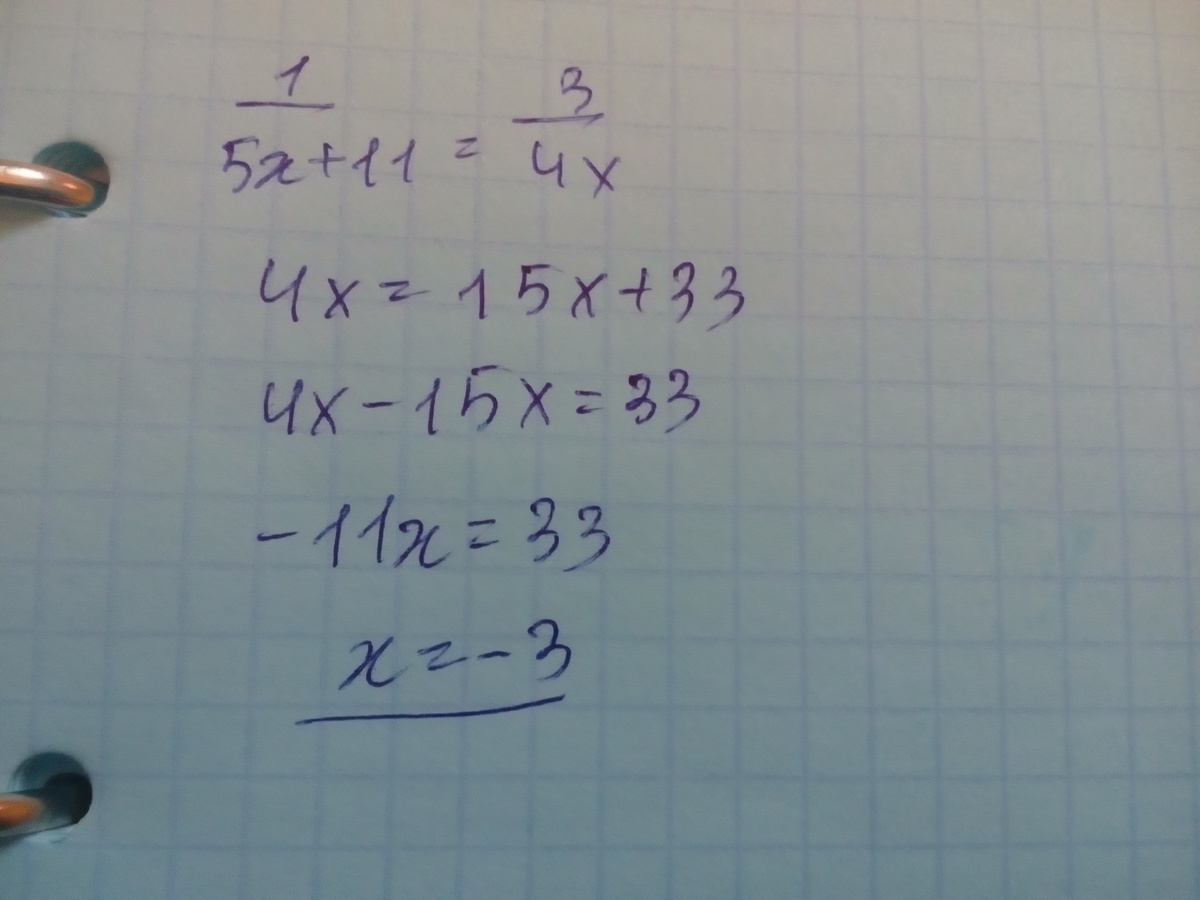 1/(5x+11) = 3/(4x)
4x = 15x+33
4x-15x=33
-11x=33
x=-3